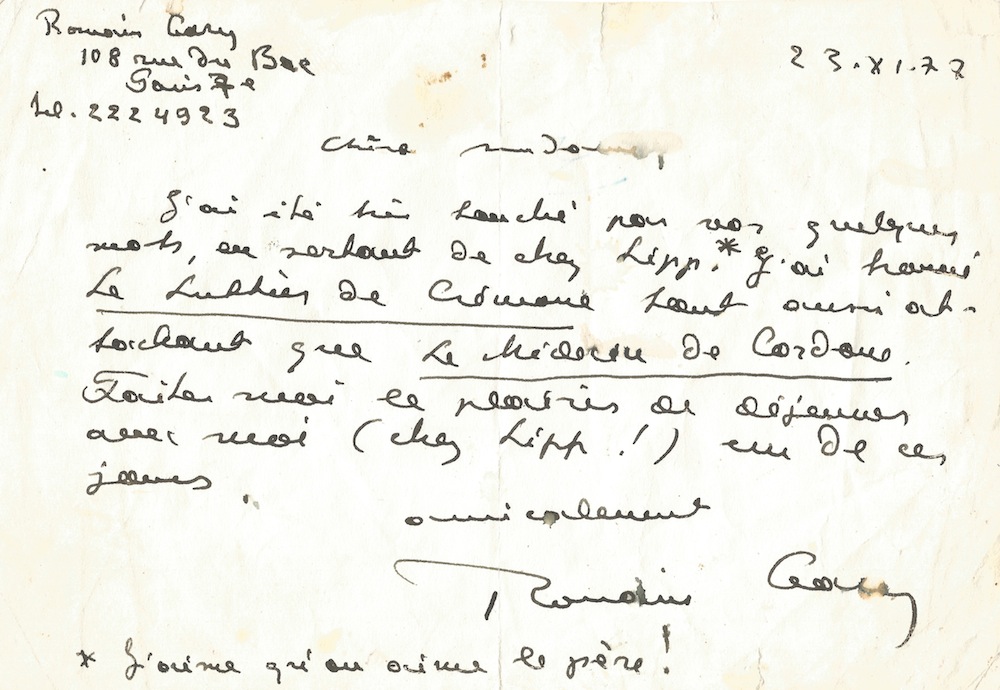 Romain Gary
23.XI.77
108 rue du Bac
Paris 7e
Tel. 2224923
Chère madame,
J'ai été très touché par vos quelques
mots, en sortant de chez Lipp.* J'ai trouvé
Le Luthier de Crémone tout aussi at-
tachant que Le Médecin de Cordoue.
Faites moi le plaisir de déjeuner
avec moi (chez Lipp!) un de ces
jours.
amicalement
Romain Gary
* J'aime qu'on aime le père!